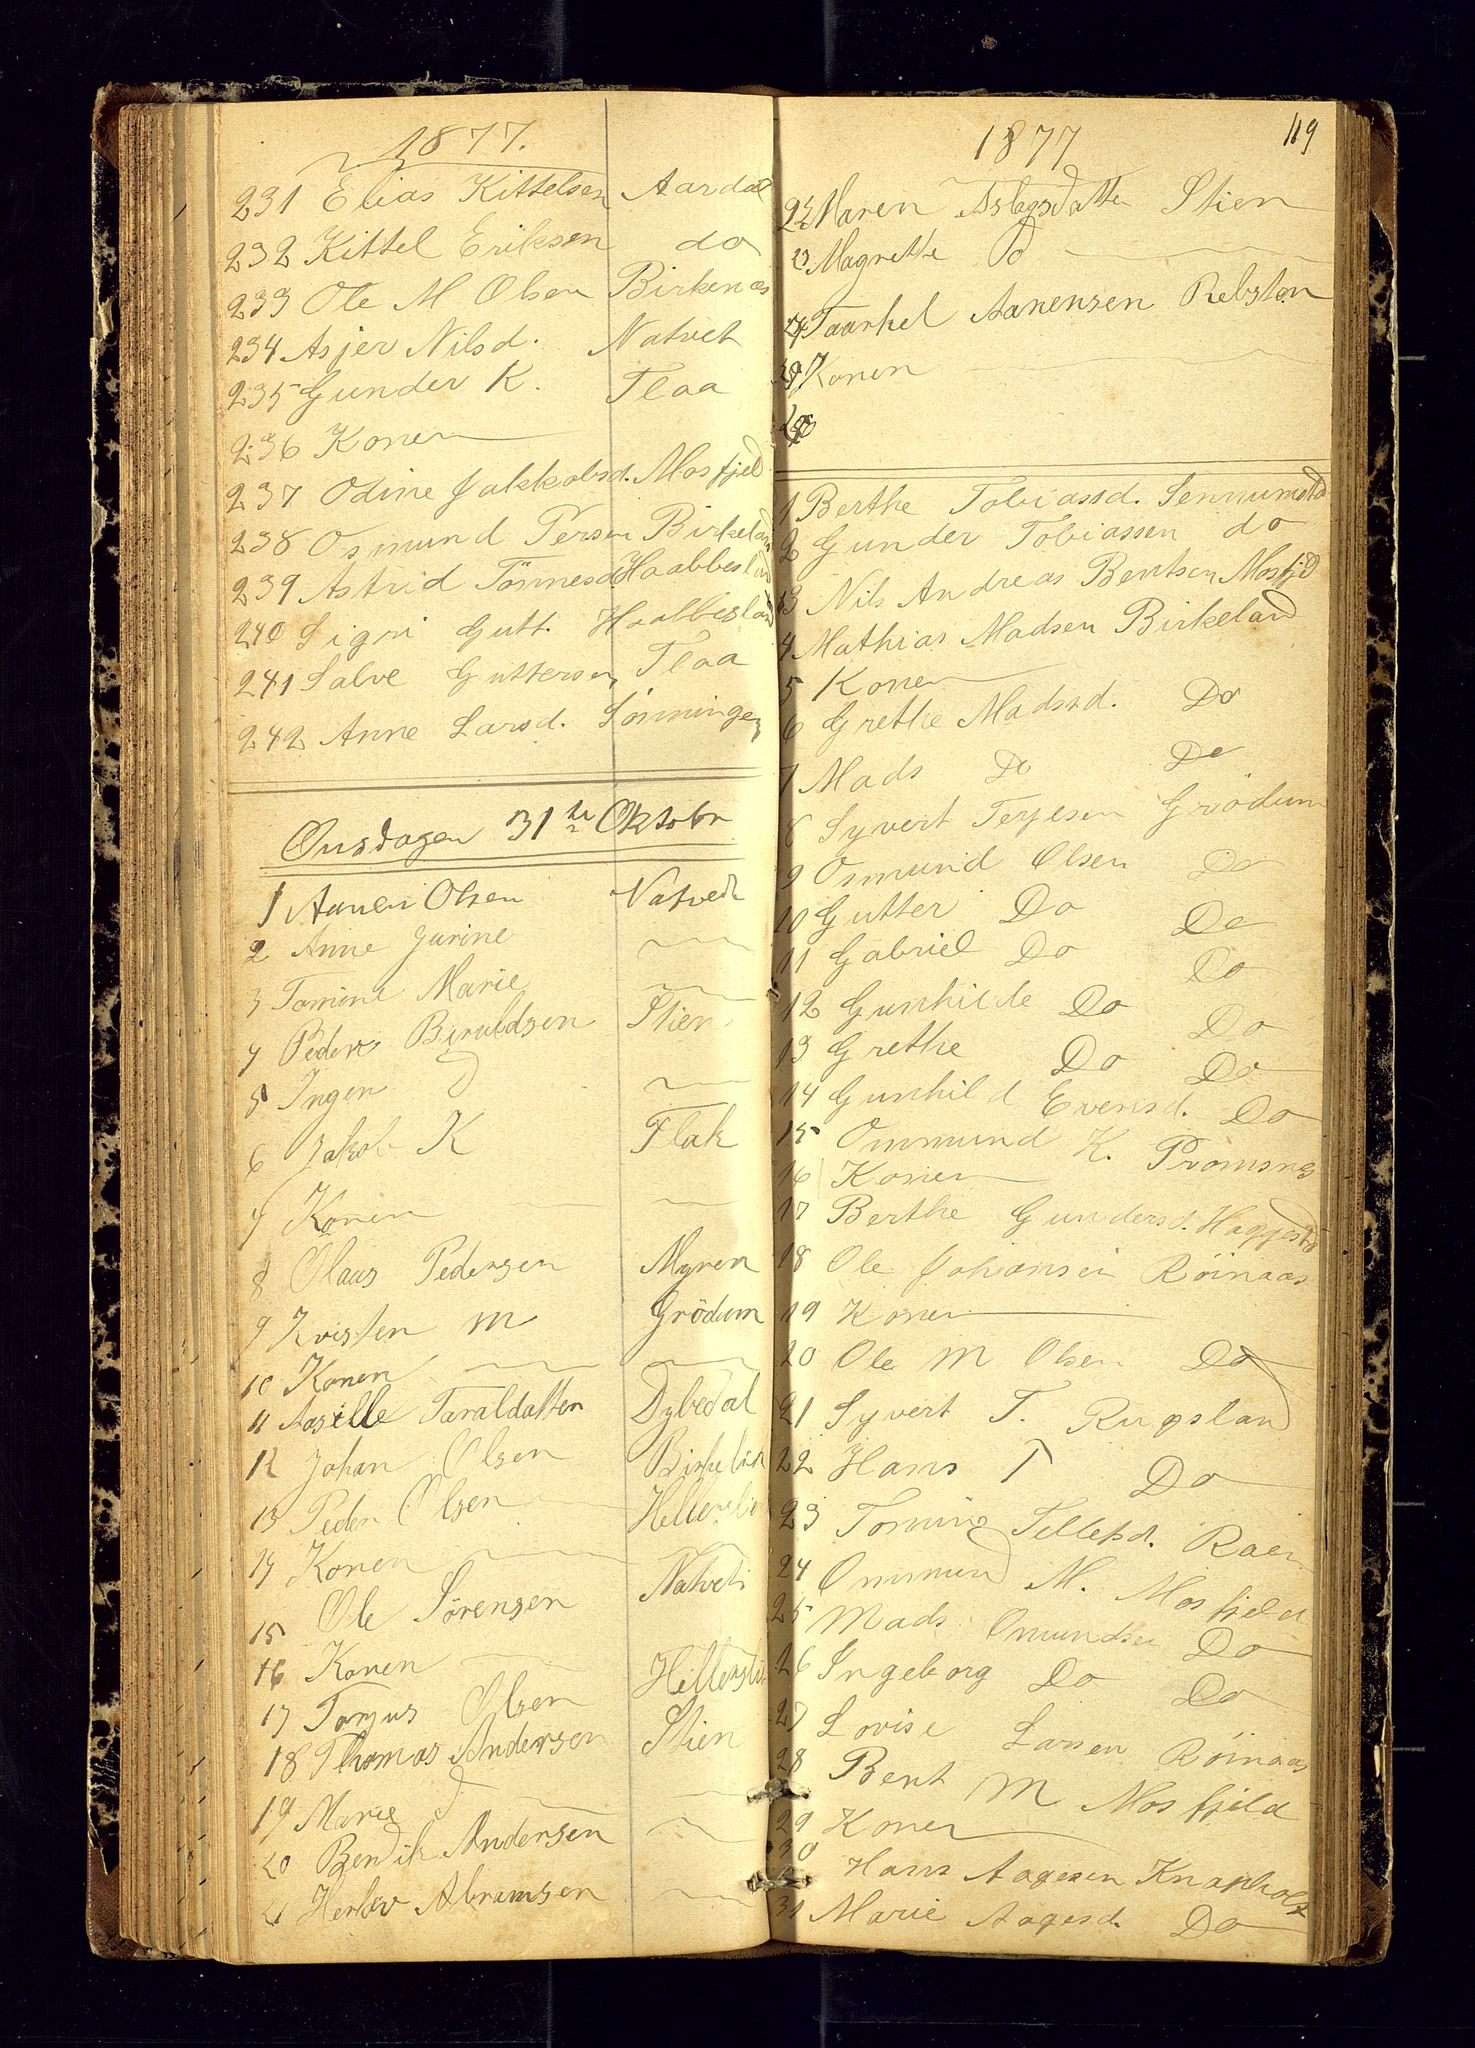 1877.
231 Elias Kittelsen Aardal
232 Kittel Eriksen do
233 Ole M Olsen Birkenæs
234 Asjer Nilsd. Natvet
235 Gunder K. Flaa
236 Konen
237 Odine Jakkobsd. Mosfjeld
238 Osmund Persen Birkeland
239 Astrid Tönnesd Haabbesland
240 Sigri Gutt. Haabbesland
241 Salve Guttersen Flaa
242 Anne Larsd. Sønningen
Onsdagen 31te Oktobr
1 Aanen Olsen Natvedt
2 Anne Jurine
3 Tomine Marie
4 Peder Biruldsen Stien
5 Ingen D
6 Jakob K Flak
7 Konen
8 Olaus Pedersen Myren
9 Kristen M Grödum
10 Konen
11 Aasille Taraldatten Dybedal
12 Johan Olsen
13 Peder Olsen Hellerslien
14 Konen
15 Ole Sörensen Natvet
16 Konen
17 Tarjus Olsen Hellerslien
18 Thomas Andersen Stien
19 Marie D
20 Bendik Andersen
21 Herlov Abramsen
1877 119
22 Maren Aslagsdatter Stien
23 Magrethe D
24 Taarkel Aanensen Rebston
25 Konen
26
1 Berthe Tobiassd. Sennumstad
2 Gunder Tobiassen do
3 Nils Andreas Bentsen Mosfjd
4 Mathias Madsen Birkeland
5 Konen
6 Grethe Madssd. Do
7 Mads Do Do
8 Syvert Terjesen Grödum
9 Osmund Olsen Do
10 Gutter Do Do
11 Gabriel Do Do
12 Gunhilde Do Do
13 Grethe Do Do
14 Gunhild Evensd. Do
15 Ommund K. Promsnes
16 Konen
17 Berthe Gundersd. Hagjestad
18 Ole Johansen Röinaas
19 Konen
20 Ole M Olsen Do
21 Syvert T. Rugsland
22 Hans T Do
23 Tomine Tellefsd. Raen
24 Ommund M. Mosfjeld
25 Mads Omundsen Do
26 Ingeborg Do Do
27 Lovise Larsen Röinaas
28 Bent M Mosfjeld
29 Konen
30 Hans Aagesen Knapholt
31 Marie Aagesd. Do